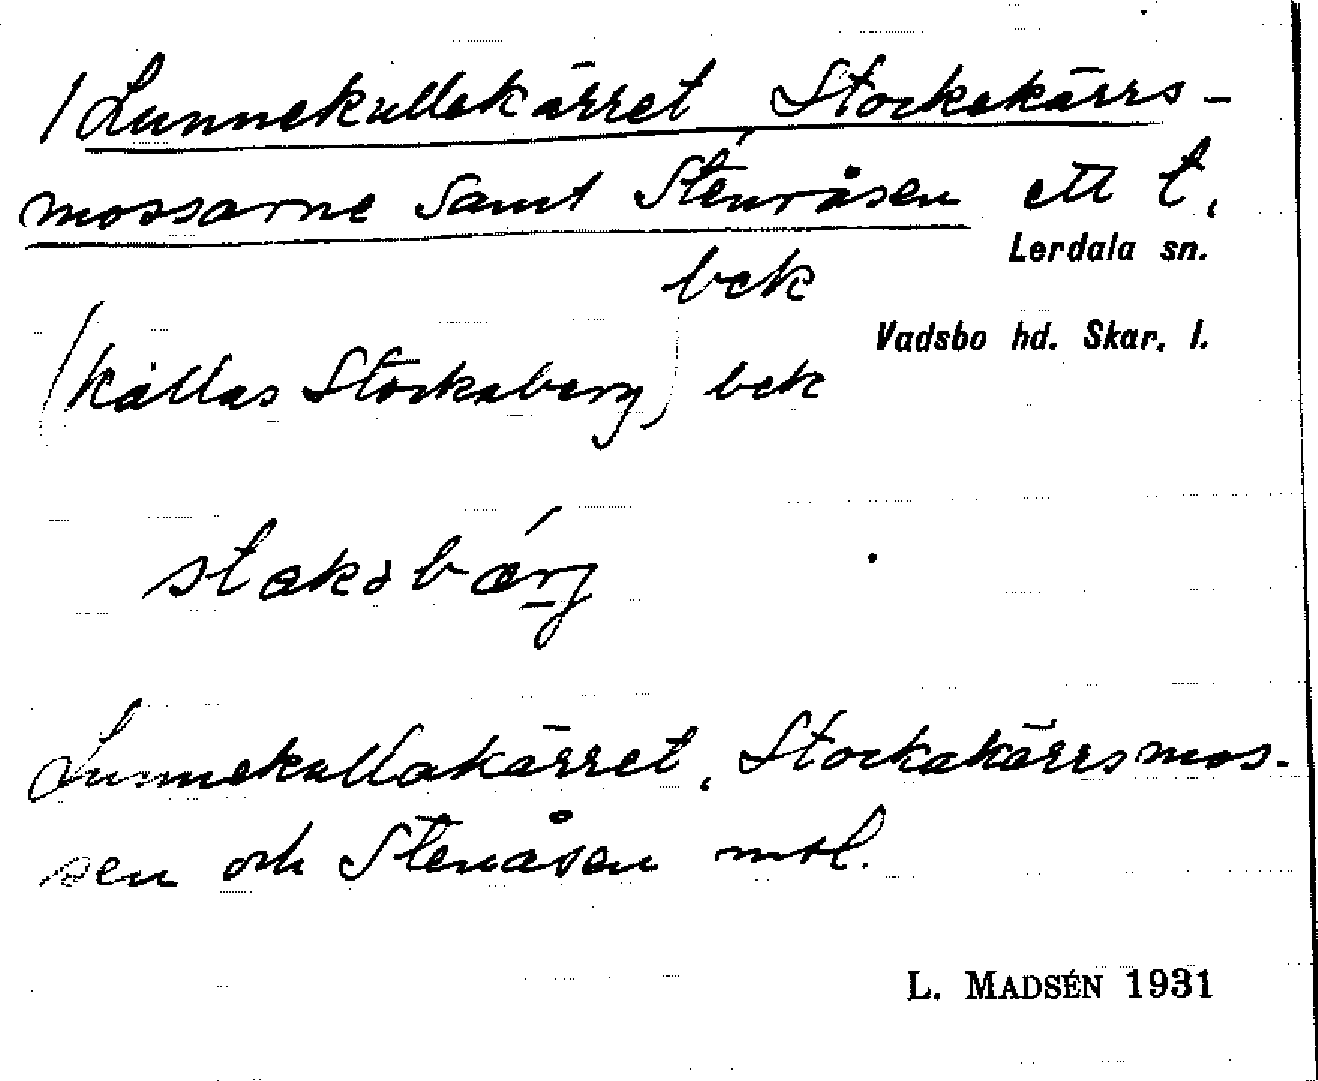 / Lunnekullekärret, Stockekärrs-
mossarne samt Stenråsen ett t,
Lerdala sn.
bek
Vadsbo hd. Skar. l.
(kallas Stockaberg) bek
stakabärj
Lunnekullakärret, Stockakärrsmos-
sen och Stenåsen mtl.
L. MADSÉN 1931